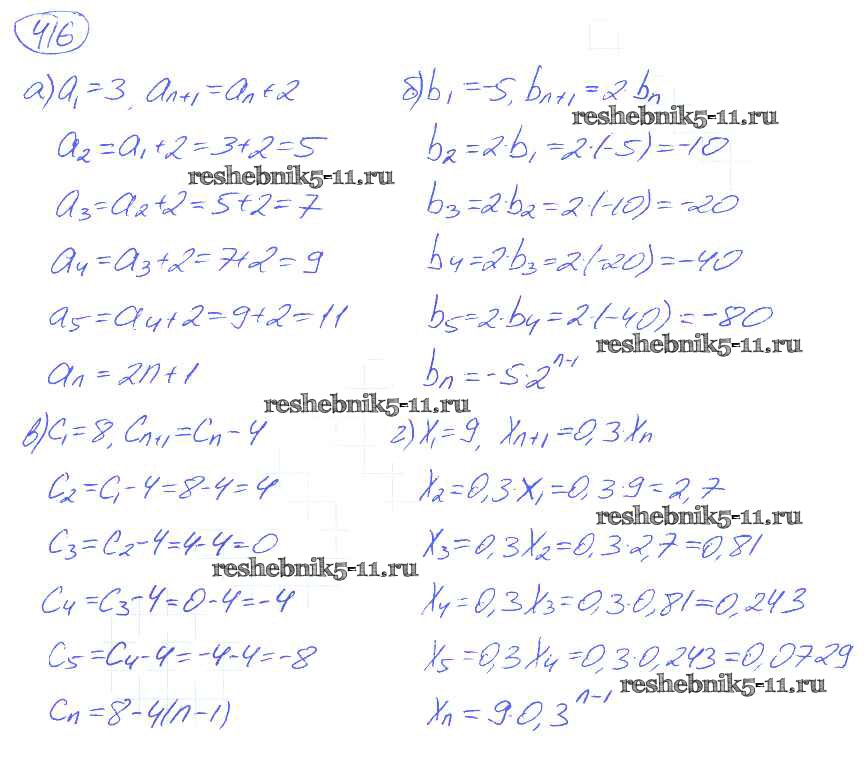 416
а) a₁ = 3, aₙ₊₁ = aₙ + 2
a₂ = a₁ + 2 = 3 + 2 = 5
reshebnik5-11.ru
a₃ = a₂ + 2 = 5 + 2 = 7
a₄ = a₃ + 2 = 7 + 2 = 9
a₅ = a₄ + 2 = 9 + 2 = 11
aₙ = 2n + 1
reshebnik5-11.ru
б) b₁ = -5, bₙ₊₁ = 2bₙ
reshebnik5-11.ru
b₂ = 2·b₁ = 2·(-5) = -10
b₃ = 2·b₂ = 2·(-10) = -20
b₄ = 2·b₃ = 2·(-20) = -40
b₅ = 2·b₄ = 2·(-40) = -80
reshebnik5-11.ru
bₙ = -5·2ⁿ⁻¹
в) c₁ = 8, cₙ₊₁ = cₙ - 4
c₂ = c₁ - 4 = 8 - 4 = 4
c₃ = c₂ - 4 = 4 - 4 = 0
reshebnik5-11.ru
c₄ = c₃ - 4 = 0 - 4 = -4
c₅ = c₄ - 4 = -4 - 4 = -8
cₙ = 8 - 4(n - 1)
г) x₁ = 9, xₙ₊₁ = 0,3xₙ
x₂ = 0,3·x₁ = 0,3·9 = 2,7
reshebnik5-11.ru
x₃ = 0,3x₂ = 0,3·2,7 = 0,81
x₄ = 0,3x₃ = 0,3·0,81 = 0,243
x₅ = 0,3x₄ = 0,3·0,243 = 0,0729
reshebnik5-11.ru
xₙ = 9·0,3ⁿ⁻¹